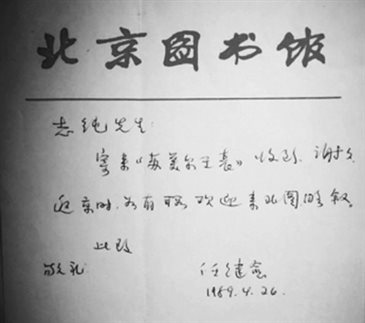 北京图书馆
志纯先生:
寄来《苏美尔王表》收到,谢谢。
返京时,如有暇,欢迎来北图晤叙。
此致
敬礼
任继愈
1989.4.26.